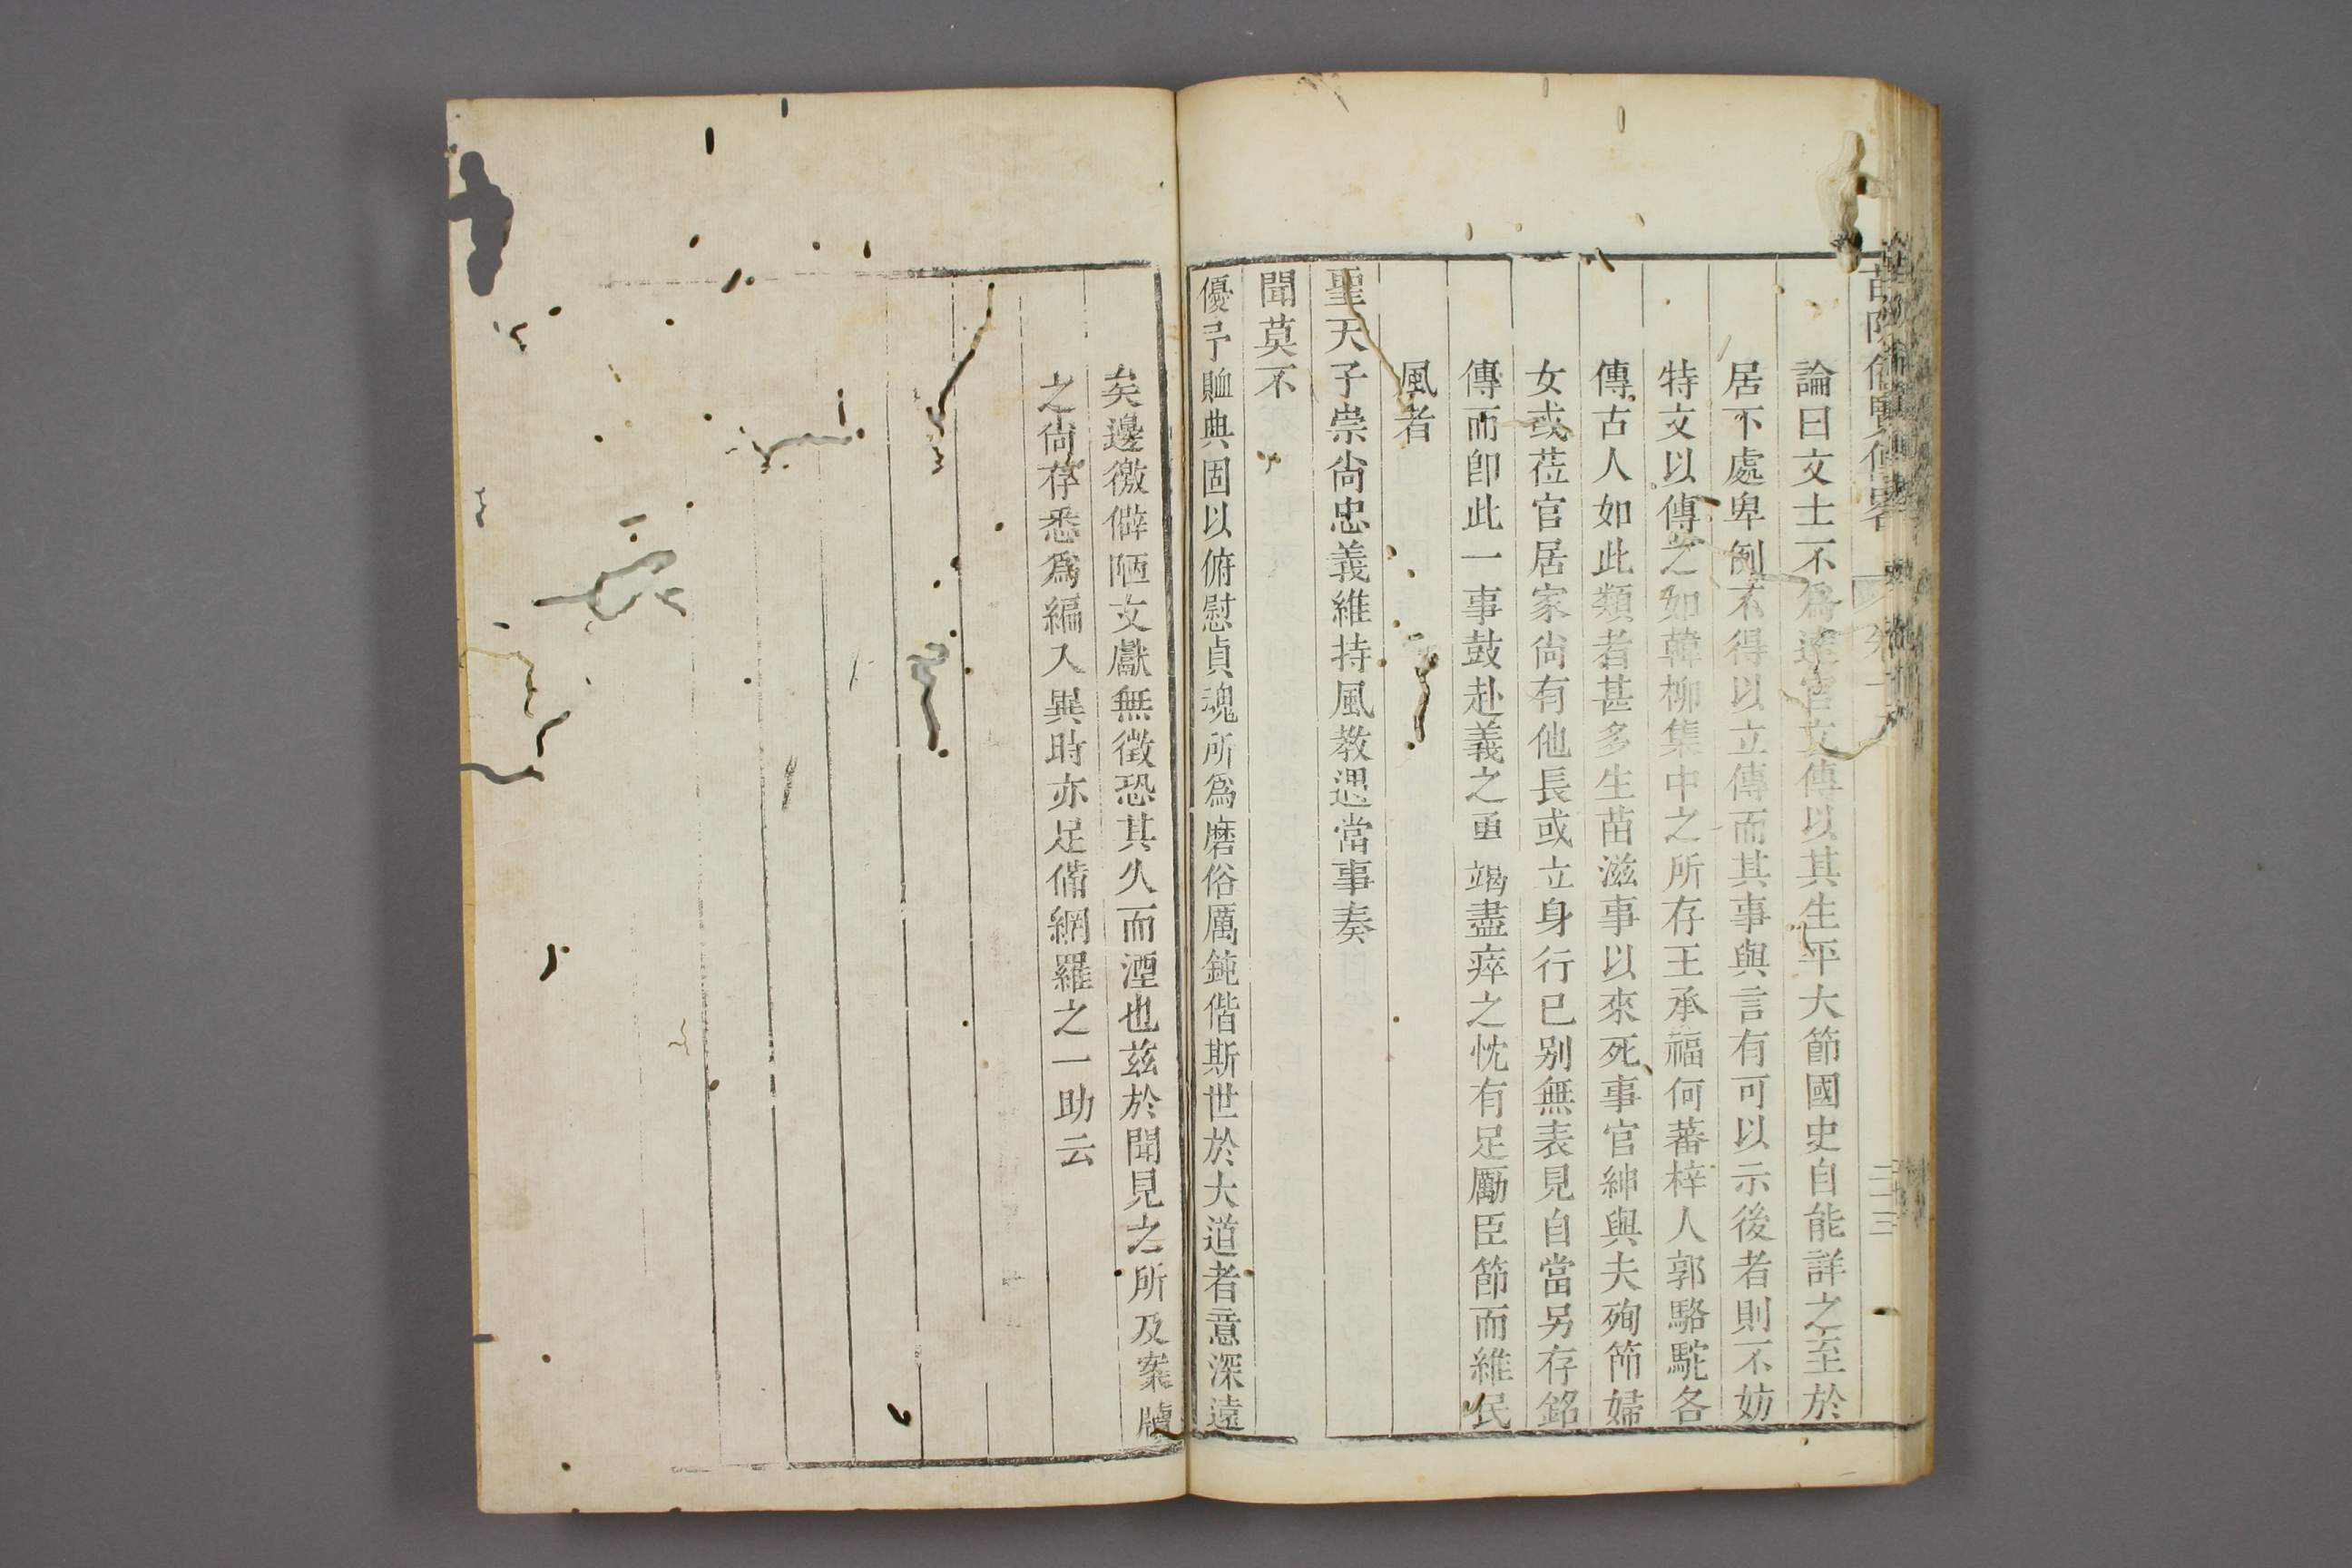 論曰文士不爲達官立傳以其生平大節國史自能詳之至於
居下處卑例不得以立傳而其事與言有可以示後者則不妨
特文以傳之如韓柳集中之所存王承福何蕃梓人郭駱駝各
傳古人如此類者甚多生苗滋事以來死事官紳與夫殉節婦
女或莅官居家尙有他長或立身行已别無表見自當另存銘
傳而卽此一事鼓赴義之勇竭盡瘁之忱有足勵臣節而維民
風者
聖天子崇尙忠義維持風教遇當事奏
聞莫不
優予䘏典固以俯慰貞魂所爲磨俗厲鈍偕斯世於大道者意深遠
矣邊徼僻陋文獻無徵恐其久而湮也茲於聞見之所及案牘
之尙存悉爲編入異時亦足備網羅之一助云